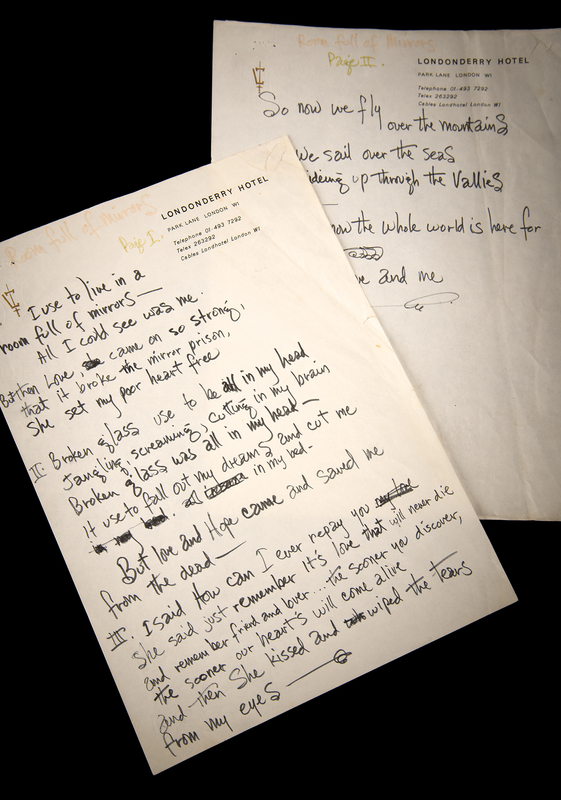 Room full of Mirrors
Page I.
LONDONDERRY HOTEL
PARK LANE LONDON W1
Telephone 01-493 7292
Telex 263292
Cables Londhotel London W1
I use to live in a
room full of mirrors —
All I could see was me.
But then Love, came on so strong,
that it broke the mirror prison,
She set my poor heart free
II: Broken glass use to be all in my head
Jangling, screaming, cutting in my brain
Broken glass was all in my head —
It use to fall out my dreams and cut me
in my bed. all in my bed -
But love and Hope came and saved me
from the dead —
III: I said How can I ever repay you
She said just remember it's love that will never die
and remember friend and lover.... the sooner you discover,
the sooner our heart's will come alive
and then She kissed and wiped the tears
from my eyes
Room full of Mirrors
Page II.
LONDONDERRY HOTEL
PARK LANE LONDON W1
Telephone 01-493 7292
Telex 263292
Cables Londhotel London W1
So now we fly
over the mountains
we sail over the seas
up through the Vallies
now the whole world is here for
and me